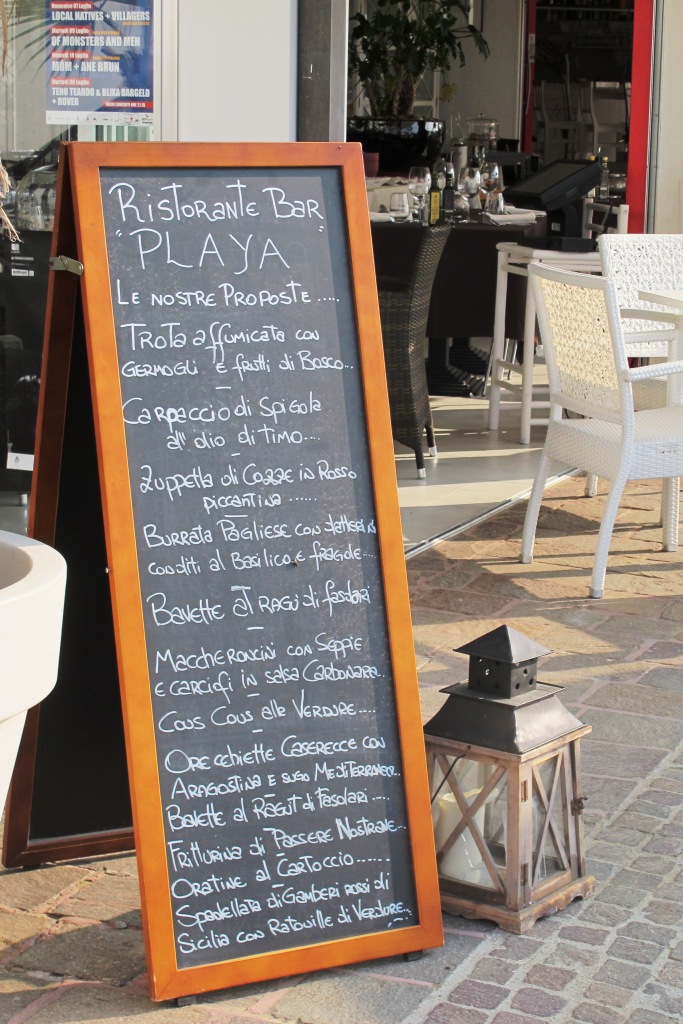 Domenica 07 Luglio
LOCAL NATIVES + VILLAGERS
OF MONSTERS AND MEN
MÚM + ANE BRUN
TEHO TEARDO & BLIXA BARGELD
+ ROVER
RISTORANTE BAR
"PLAYA"
LE NOSTRE PROPOSTE.....
TROTA affUMICATA CON
GERMOGLI E fRUTTI di BOSCO...
CARPACCIO di SPIGOLA
all'olio di TIMO....
ZUPPETTA di COZZE IN ROSSO
piccantina ......
BURRATA PAGLIESE CON datterini
CONDITI al BASILICO E fRAGOLE....
BAVETTE al RAGÙ di fasolari
MACCHERONCINI CON SEPPIE
E CARCIOfI IN SALSA CARBONARA..
COUS COUS alle VERDURE....
ORECCHIETTE CASERECCE CON
ARAGOSTINA E SUGO MEDITERRANEO...
BAVETTE al RAGÙT di FASOLARI ....
FRITTURINA di PASSERE NOSTRANE...
ORATINE al CARTOCCIO......
SPADELLATA di GAMBERI ROSSI di
SICILIA CON RATOUILLE di VERDURE...